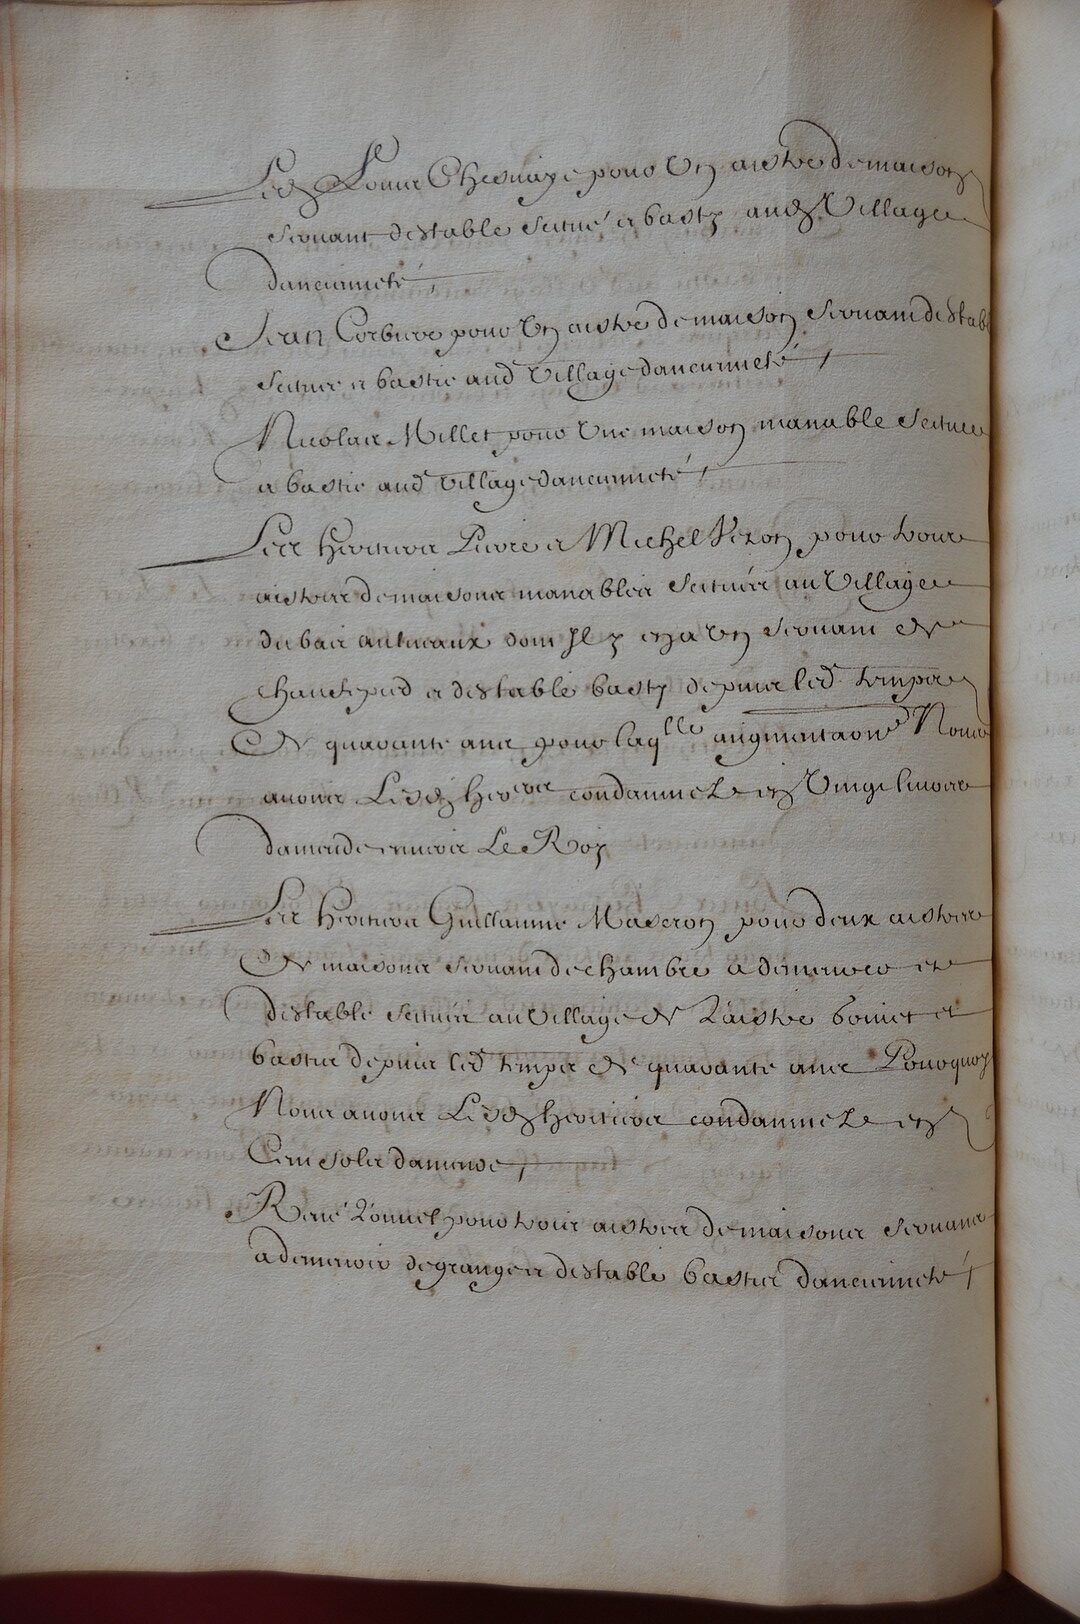 Led Louis Chesnaye pour Un aistre de maison
servant destable scitué et basty aud Village
danciennetté
Jean Corbiere pour Un aistre de maison servant destable
scituée et bastie aud Village danciennetté
Nicolas Millet pour Une maison manable scituée
et bastie aud Village danciennetté
Les heritiers Pierre et Michel Vezon pour trois
aistres de maisons manables scitués au Village
du bais dont Il y en a Un servant de
chauchepied et destable basty depuis led temps
de quarante ans pour laqlle augmentaon Nous
avons Lesd herers condamnez en Vingt livres
damende envers Le Roy
Les heritiers Guillaume Maseron pour deux aistres
de maisons servant de chambre a demeurer et
destable scitués au Village de Laistre et
bastis depuis led temps de quarante ans Pourquoy
Nous avons Lesd heritiers condamnez en
Cent sols damende
René pour trois aistres de maisons servans
a demeurer de grange et destable bastis danciennetté